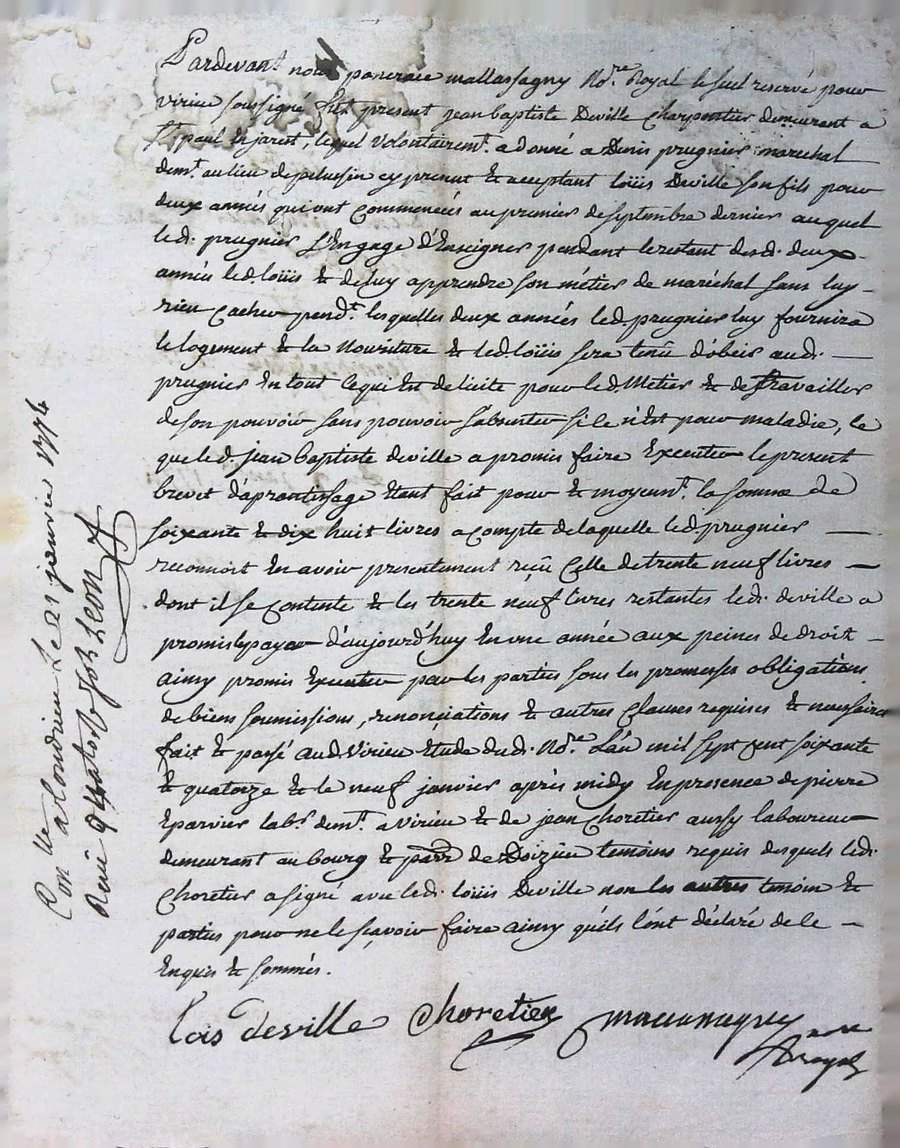 Pardevant nous pancrace mallassagny No.re Royal le seul reservé pour
virieu soussigné fut present jean baptiste Deville Charpentier demeurant a
St. paul En jarest, lequel volontairem.t a donné a Denis prugnier marechal
dem.t au lieu de pelussin cy present & acceptant loüis Deville son fils pour
deux années qui ont commencées au premier de septembre dernier auquel
led. prugnier s'Engage d'Enseigner pendant le restant desd. deux
années led. loüis & de luy apprendre son métier de maréchal sans luy
rien cacher pend.t lesquelles deux années led. prugnier luy fournira
le logement & la nouriture & led. loüis sera tenû d'obeir aud.
prugnier En tout ce qui Est de licite pour led. Métier & de travailler
de son pouvoir sans pouvoir s'absenter si ce n'est pour maladie, ce
que led. jean baptiste deville a promis faire Executer le present
brevet d'aprentissage étant fait pour & moyenn.t la somme de
soixante & dix huit livres a compte de laquelle led. prugnier
reconnoit En avoir presentement reçû Celle de trente neuf livres
dont il se Contente & les trente neuf livres restantes led. deville a
promis le payer d'aujourd'huy En une année aux peines de droit
ainsy promis Executer par les parties sous les promesses obligations
de biens soumissions, renonciations & autres Clauses requises & necessaires
fait & passé aud. Virieu Etude dud. No.re L'an mil sept cent soixante
& quatorze & le neuf janvier après midy En presence de pierre
Eparvier lab.r dem.t a Virieu & de jean Choretier aussy laboureur
demeurant au bourg & parr. de Doizieu temoins requis desquels led.
Choretier a signé avec led. loüis Deville non les autres temoin &
parties pour ne le sçavoir faire ainsy qu'ils l'ont déclaré de ce
Enquis & sommés.
lois deville Choretier
Royal
Con.lle
a Condrieu Le 21 janvier 1774
Reçu quatorze sols Leon